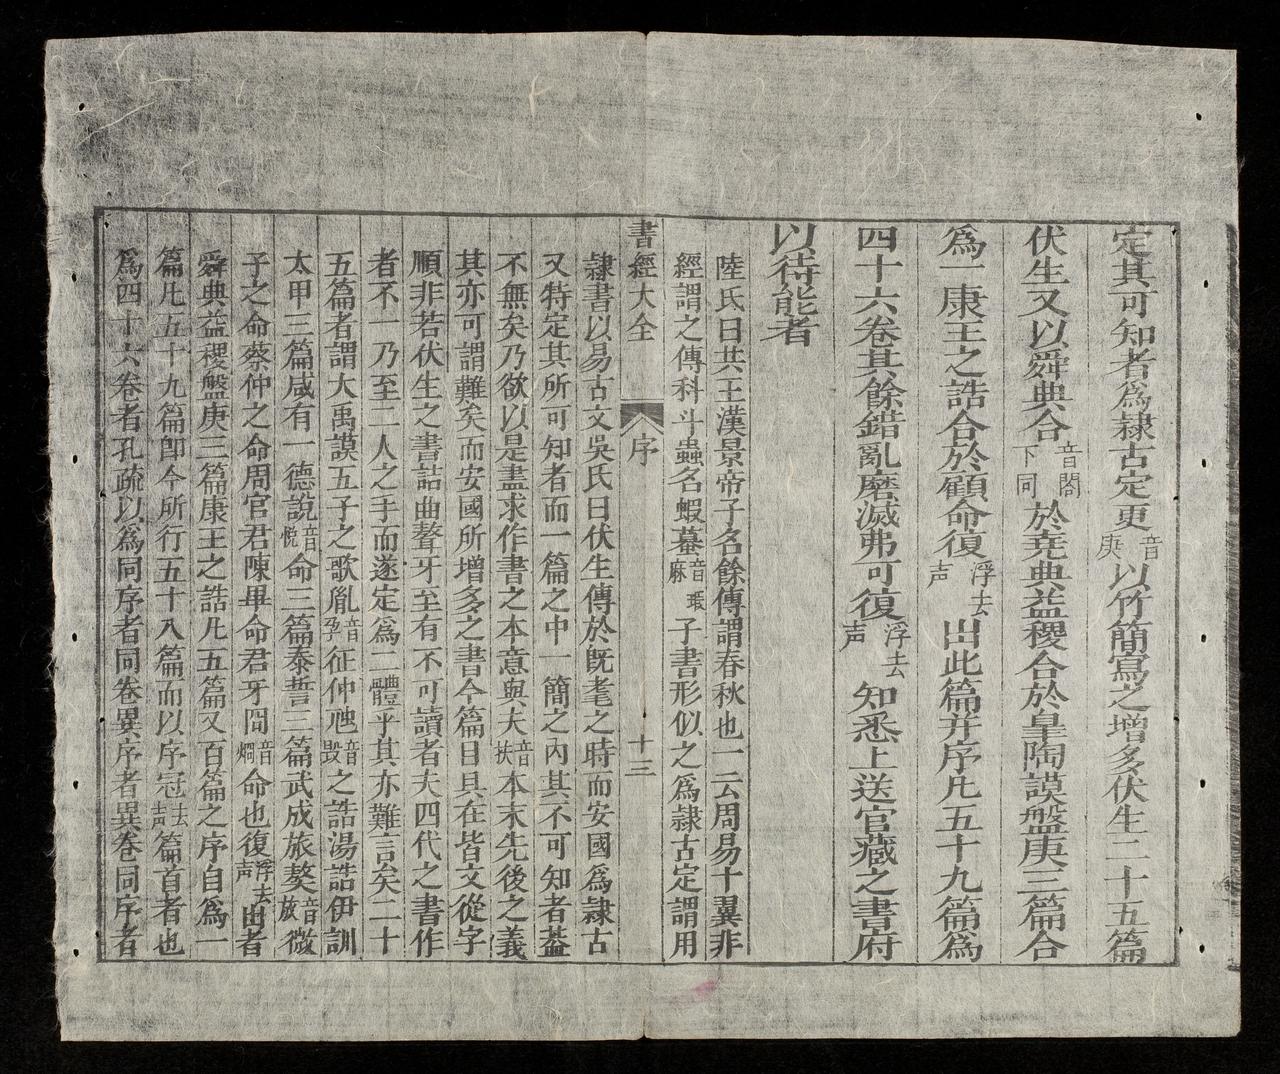 定其可知者爲隸古定更音庚以竹簡寫之增多伏生二十五篇
伏生又以舜典合音閤下同於堯典益稷合於皐陶謨盤庚三篇合
爲一康王之誥合於顧命復浮去声出此篇并序凡五十九篇爲
四十六卷其餘錯亂磨滅弗可復浮去声知悉上送官藏之書府
以待能者
陸氏曰共王漢景帝子名餘傳謂春秋也一云周易十翼非
經謂之傳科斗蟲名蝦蟇音遐麻子書形似之爲隸古定謂用
書經大全 序 十三
隷書以易古文吳氏曰伏生傳於旣耄之時而安國爲隷古
又特定其所可知者而一篇之中一簡之內其不可知者葢
不無矣乃欲以是盡求作書之本意與夫音扶本末先後之義
其亦可謂難矣而安國所增多之書今篇目具在皆文從字
順非若伏生之書詰曲聱牙至有不可讀者夫四代之書作
者不一乃至二人之手而遂定爲二體乎其亦難言矣二十
五篇者謂大禹謨五子之歌胤音孕征仲虺音毀之誥湯誥伊訓
太甲三篇咸有一德說音悅命三篇泰誓三篇武成旅獒音放微
子之命蔡仲之命周官君陳畢命君牙冏音烱命也復浮去声出者
舜典益稷盤庚三篇康王之誥凡五篇又百篇之序自爲一
篇凡五十九篇卽今所行五十八篇而以序冠去声篇首者也
爲四十六卷者孔疏以爲同序者同卷異序者異卷同序者